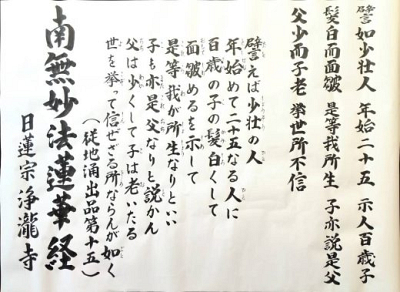 譬如少壮人 年始二十五 示人百歳子
髪白而面皺 是等我所生 子亦説是父
父少而子老 挙世所不信
譬えば少壮の人
年始めて二十五なる人に
百歳の子の髪白くして
面皺めるを示して
是等我が所生なりといい
子も亦是父なりと説かん
父は少くして子は老いたる
世を挙って信ぜざる所ならんが如く
（従地涌出品第十五）
南無妙法蓮華経
日蓮宗 浄瀧寺